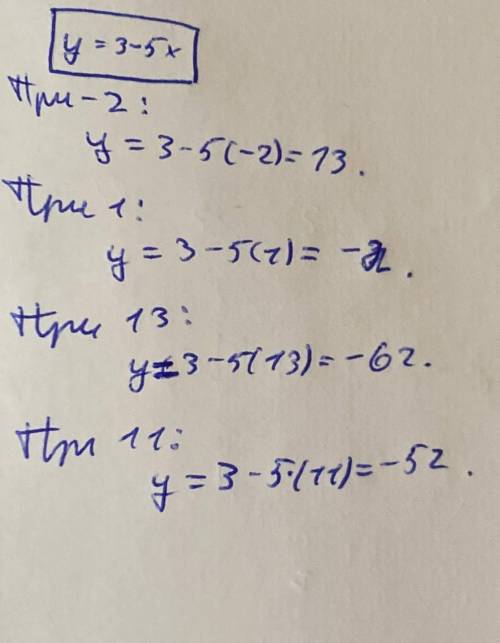 y = 3-5x
При -2:
y = 3 - 5(-2) = 13.
При 1:
y = 3 - 5(1) = -2.
При 13:
y = 3 - 5(13) = -62.
При 11:
y = 3 - 5·(11) = -52.